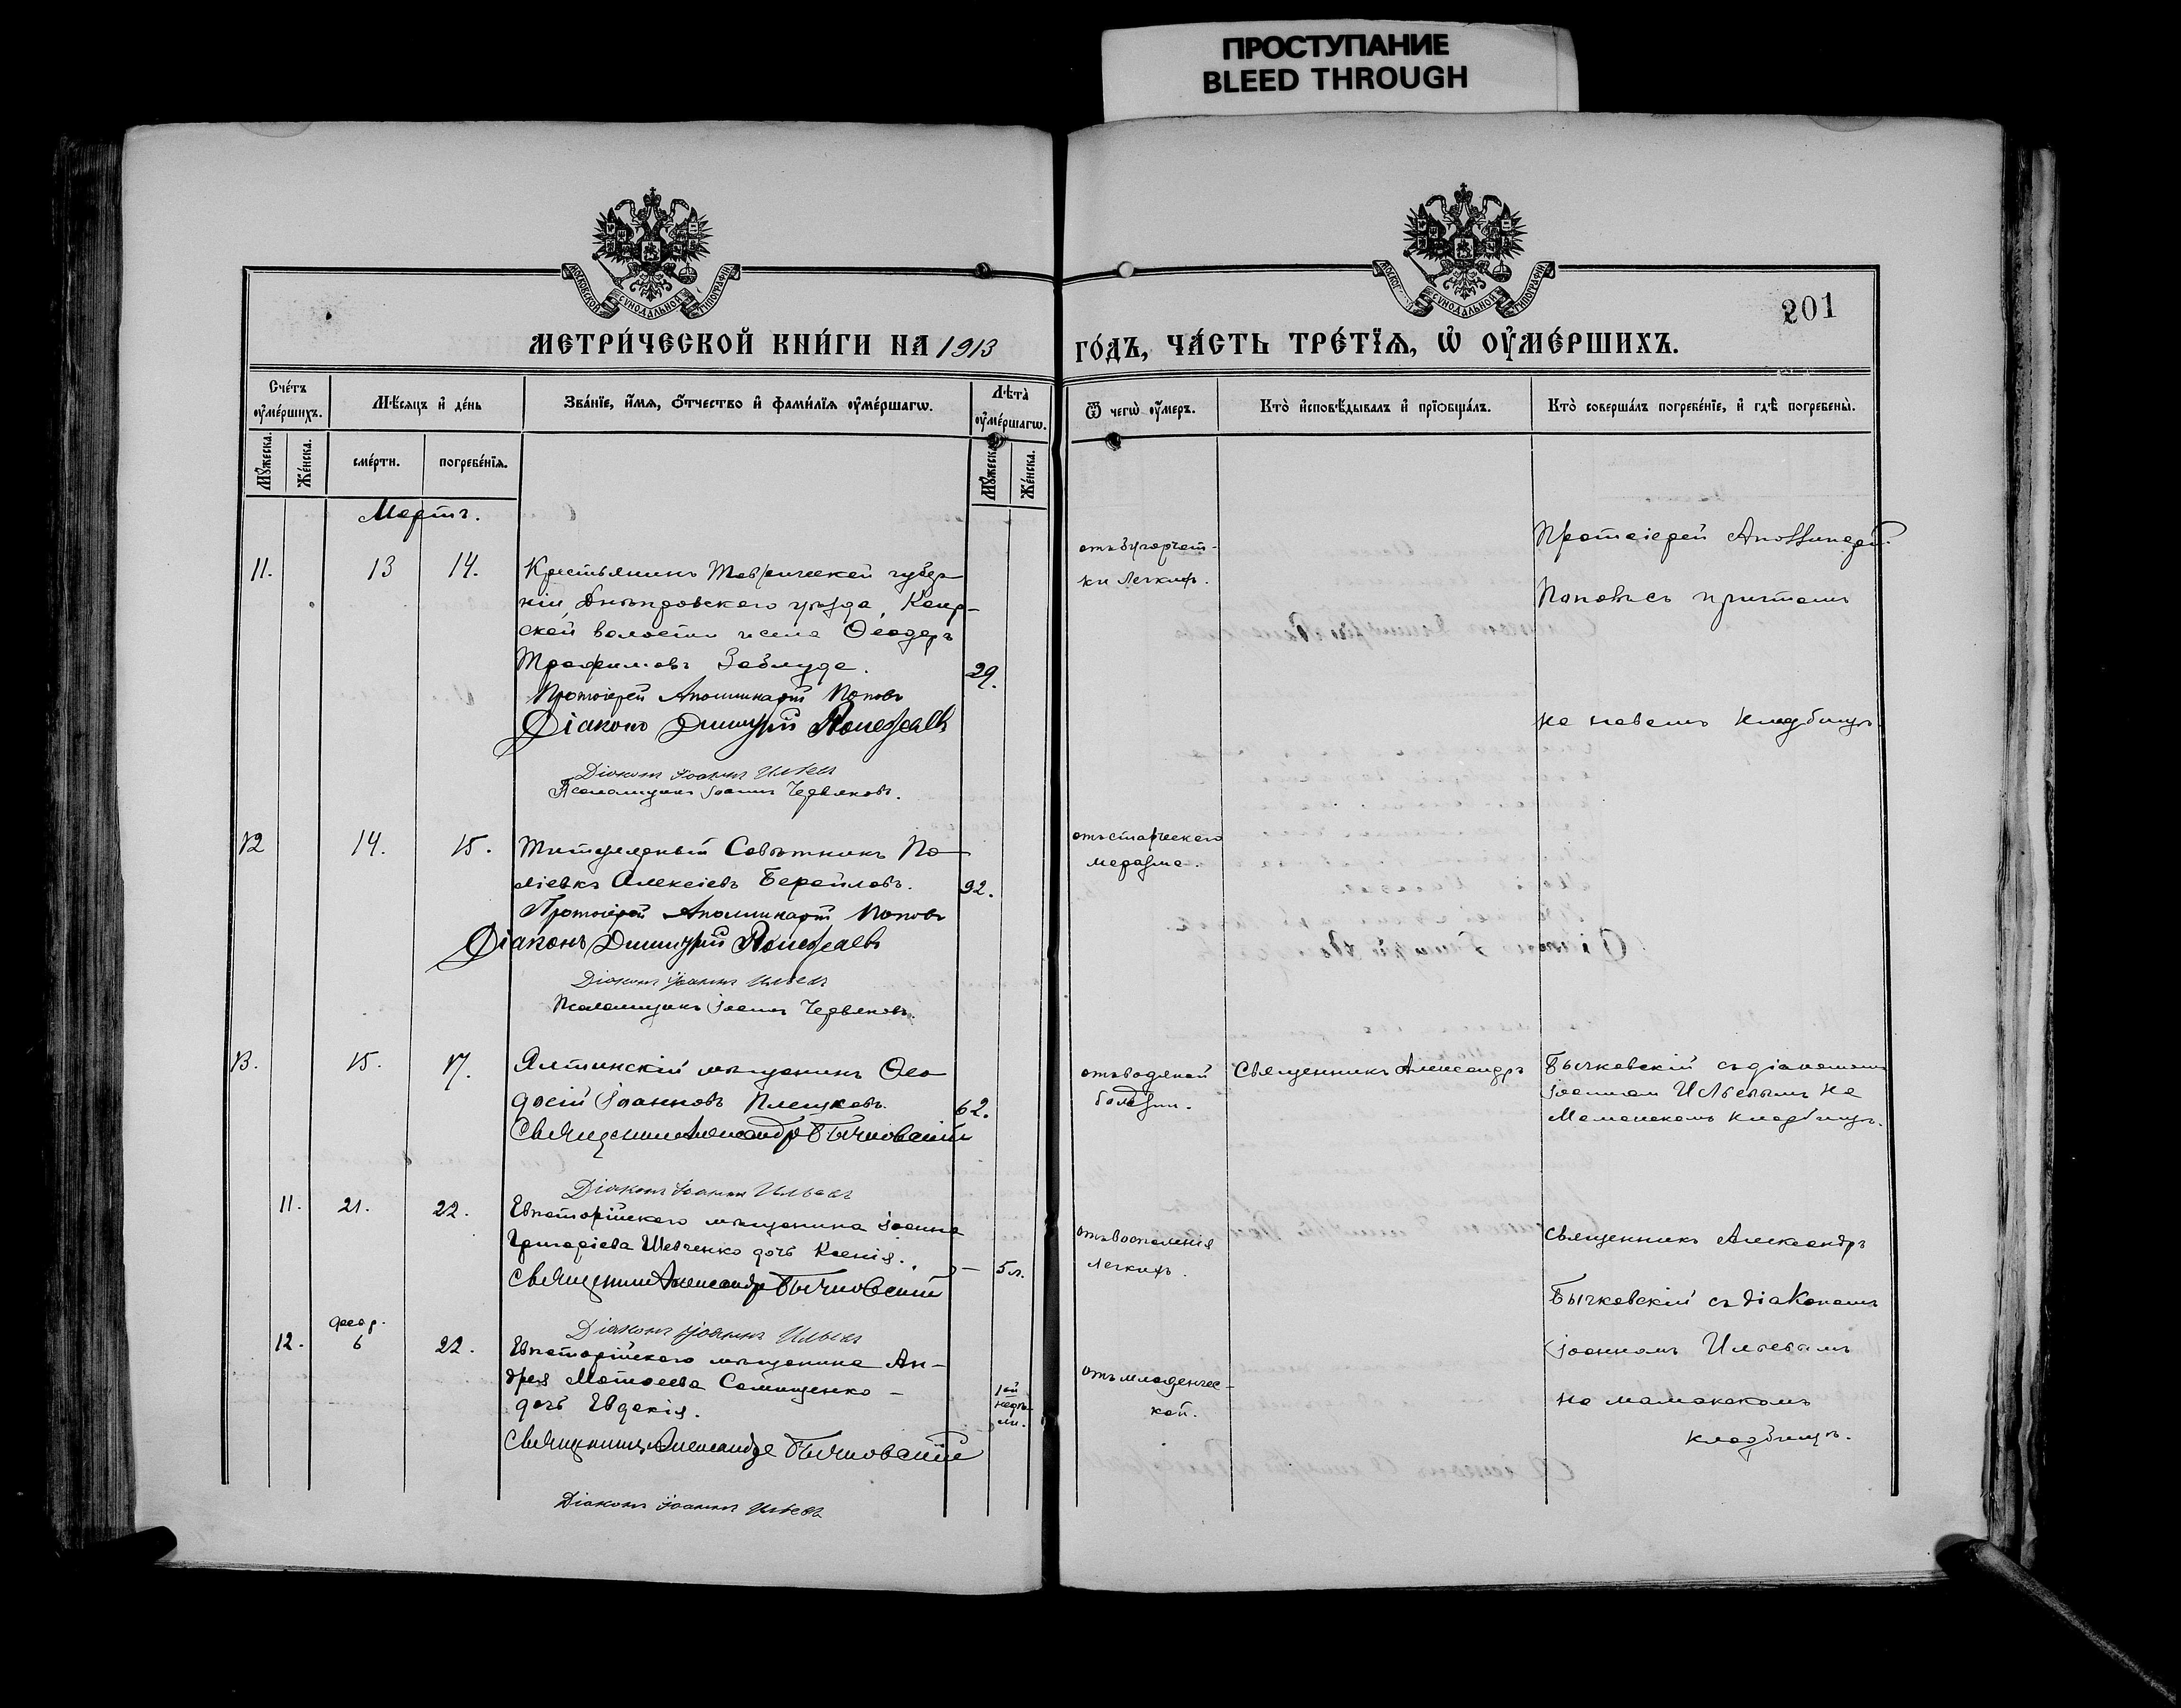 ПРОСТУПАНИЕ
BLEED THROUGH
МОСКОВСКОЙ СУНОДАЛЬНОЙ ТИПОГРАФІИ
СУНОДАЛЬНОЙ ТИПОГРАФІИ
201
МЕТРИ́ЧЕСКОЙ КНИ́ГИ НА 1913
ГО́ДЪ, ЧА́СТЬ ТРЕ́ТІѦ, Ѡ ОУ҆МЕ́РШИХЪ.
Сче́тъ оу҆ме́ршихъ.
Мѣ́сяцъ и҆ де́нь
Зва́нїе, и҆́мѧ, ѻ҆́тчество и҆ фами́лїѧ оу҆ме́ршагѡ.
Лѣта̀ оу҆ме́ршагѡ.
Ѿ чегѡ̀ оу҆́меръ.
Кто̀ и҆сповѣ́дывалъ и҆ прїѡбща́лъ.
Кто̀ соверша́лъ погребе́нїе, и҆ гдѣ̀ погребены̀.
Мꙋ́жеска.
Же́нска.
сме́рти.
погребе́нїѧ.
Мꙋ́жеска.
Же́нска.
Мартъ.
11. 13 14. Крестьянинъ Таврической губер-
ніи Днѣпровскаго уѣзда, Каир-
ской волости и села Ѳеодоръ
Трофимовъ Заблуда. 29.
Протоіерей Аполлинарій Поповъ
Діаконъ Димитрій
Діаконъ Іоаннъ Ильевъ
Псаломщикъ Іоаннъ Червяковъ.
отъ бугорчат-
ки легкихъ.
Протоіерей Аполлинарій
Поповъ съ причтомъ
на новомъ кладбищѣ.
12 14. 15. Титулярный Совѣтникъ По-
ліевкъ Алексіевъ 92.
Протоіерей Аполлинарій Поповъ
Діаконъ Димитрій
Діаконъ Іоаннъ Ильевъ
Псаломщикъ Іоаннъ Червяковъ.
отъ старческаго
маразма.
13. 15. 17. Ялтинскій мѣщанинъ Ѳео-
досій Іоанновъ Плешковъ. 62.
Священникъ Александръ Бычковскій
Діаконъ Іоаннъ Ильевъ
отъ водяной
болѣзни.
Священникъ Александръ
Бычковскій съ діакономъ
Іоанномъ Ильевымъ на
Мамакскомъ кладбищѣ.
11. 21. 22. Евпаторійскаго мѣщанина Іоанна
Григоріева Шевченко дочь Ксенія. 5 л.
Священникъ Александръ Бычковскій
Діаконъ Іоаннъ Ильевъ
отъ воспаленія
легкихъ.
Священникъ Александръ
Бычковскій съ діакономъ
Іоанномъ Ильевымъ
на мамакскомъ
кладбищѣ.
12. февр.
6 22. Евпаторійскаго мѣщанина Ан-
дрея Матѳеева Самищенко -
дочь Евдокія.
Священникъ Александръ Бычковскій
Діаконъ Іоаннъ Ильевъ
отъ младенчес-
кой.